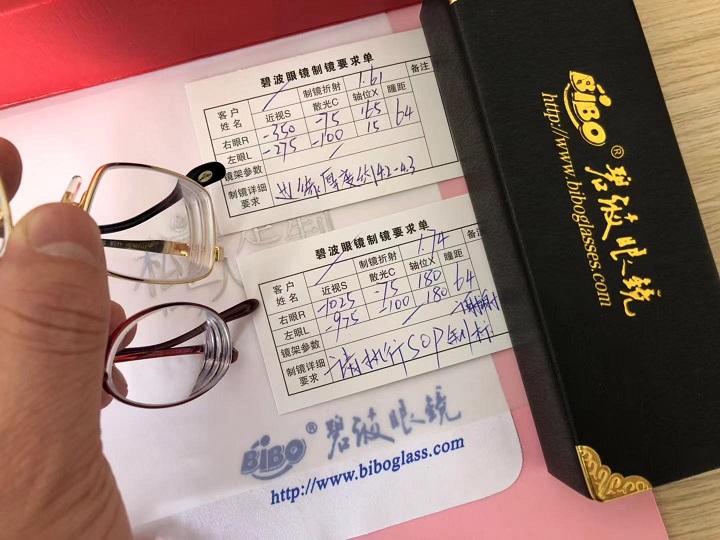 碧波眼镜制镜要求单
客户姓名 制镜折射 1.61 备注
近视S 散光C 轴位X 瞳距
右眼R -350 -75 165 64
左眼L -275 -100 15
镜架参数
制镜详细要求 边缘厚度约4.2-4.3
碧波眼镜制镜要求单
客户姓名 制镜折射 1.74 备注
近视S 散光C 轴位X 瞳距
右眼R -1025 -75 180 64
左眼L -975 -100 180
镜架参数
制镜详细要求 请执行SOP 谢谢
BiBO® 碧波眼镜
http://www.biboglass.com
BiBO® 碧波眼镜
http://www.biboglasses.com